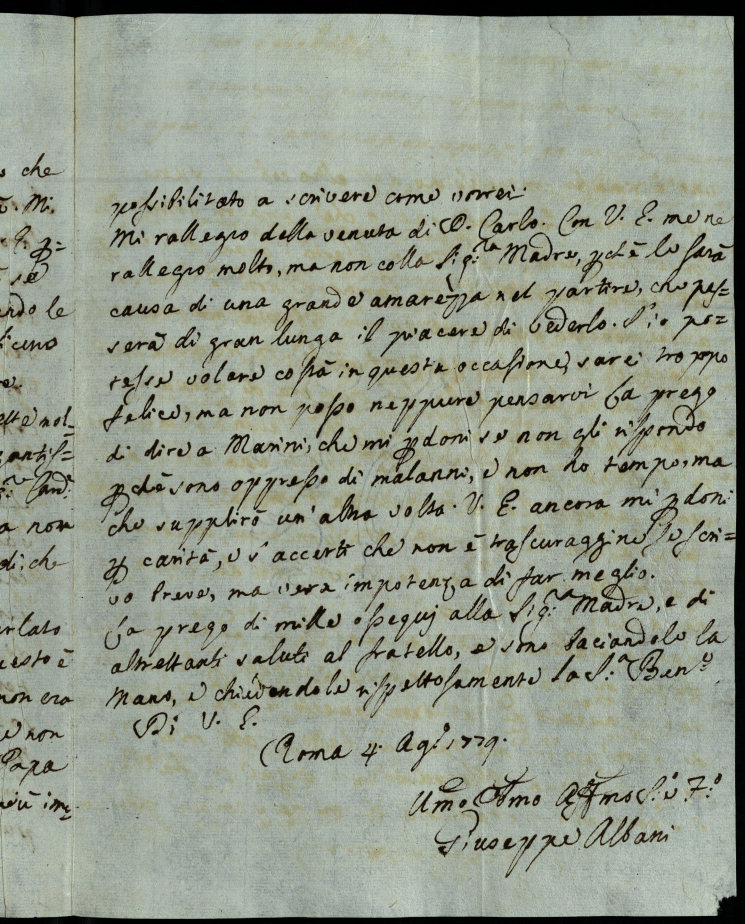 o che
Mi
se
ndo le
e nol=
a non
di; che
rlato
uesto è
non era
e non
Papa
im=
possibilitato a scrivere come vorrei.
Mi rallegro della venuta di D. Carlo. Con V. E. me ne
rallegro molto, ma non colla Sig.ra Madre, pchè le sarà
causa di una grande amarezza nel partire, che pas=
serà di gran lunga il piacere di vederlo. S'io po=
tesse volare costà in questa occasione, sarei troppo
felice, ma non posso neppure pensarvi. La prego
di dire a Marini, che mi pdoni se non gli rispondo
pchè sono oppresso di malanni, e non ho tempo, ma
che supplirò un'altra volta. V. E. ancora mi pdoni
p carità, e s'accerti che non è trascuraggine se scri=
vo breve, ma vera impotenza di far meglio.
La prego di mille ossequj alla Sig.ra Madre, e di
altrettanti saluti al fratello, e sono baciandole la
Mano, e chiedendole rispettosamente la S.a Ben.e
Di V. E.
Roma 4. Ag.o 1779.
Umo Obmo Affmo S.e F.o
Giuseppe Albani